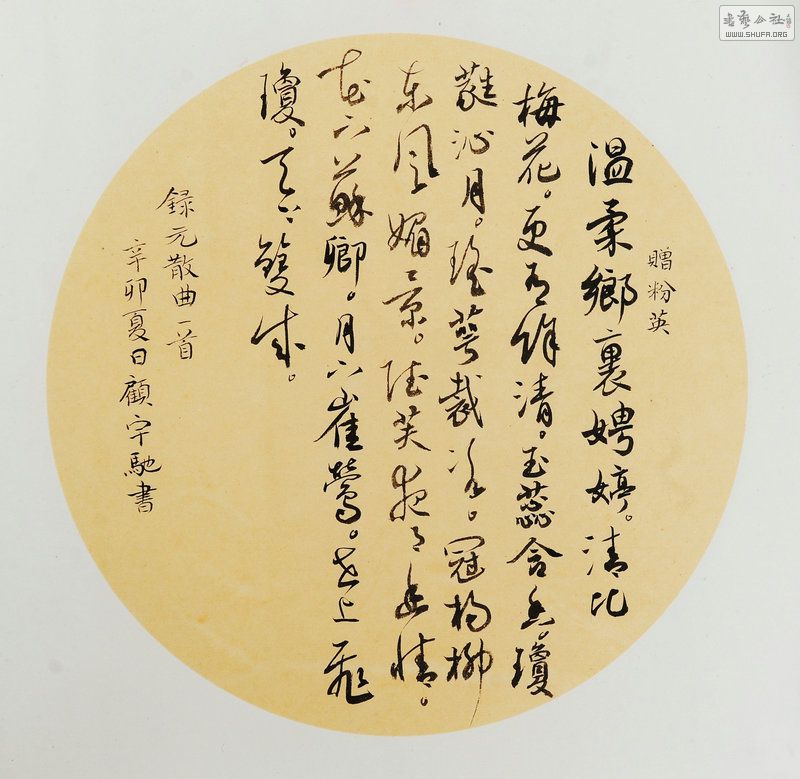 書藝公社
WWW.SHUFA.ORG
贈粉英
温柔鄉裏娉婷。清比
梅花。更有餘清。玉蕊含香。瓊
蕤沁月。瑤萼裁冰。冠楊柳
東風媚景。芙夜月幽情。
花下蘇卿。月下崔鶯。世上飛
瓊。天下雙成。
録元散曲一首
辛卯夏日顧宇馳書